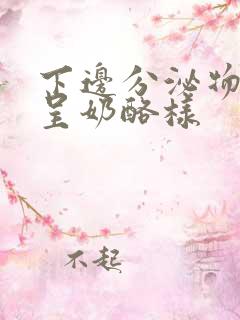 下邊分泌物
呈奶酪樣
不起